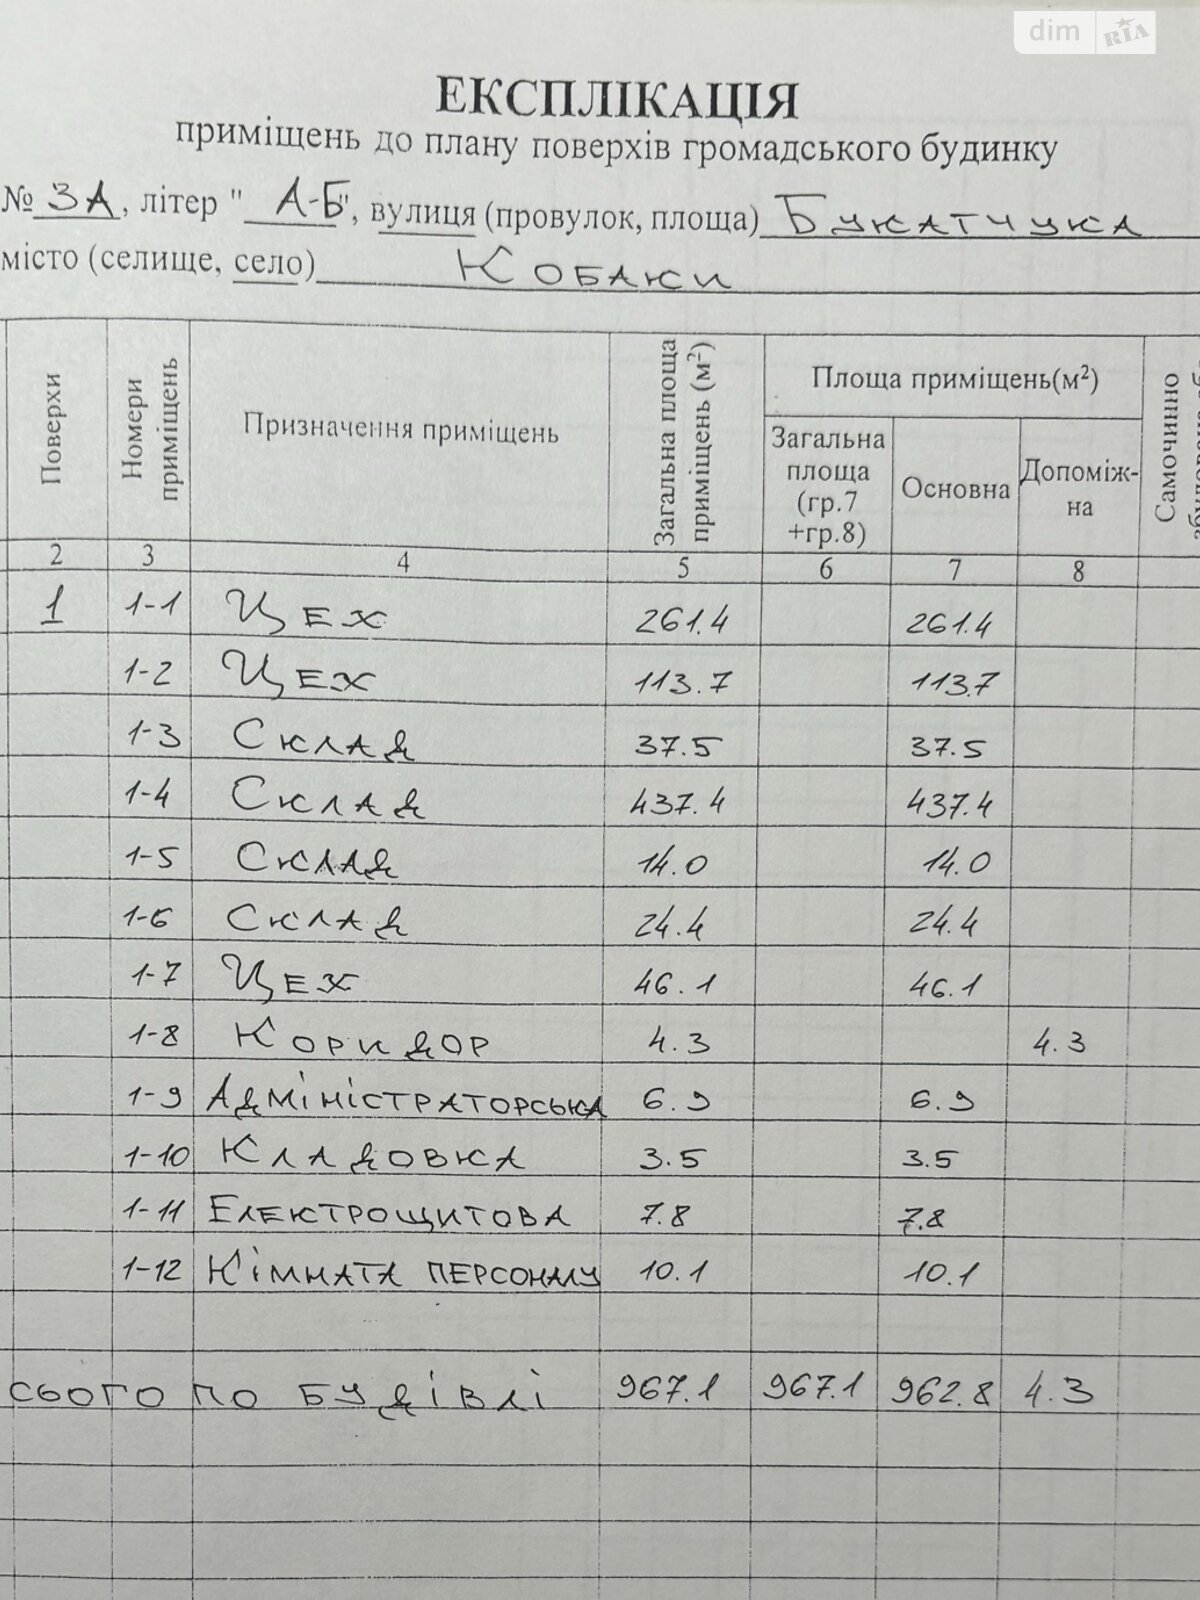 dim RIA
ЕКСПЛІКАЦІЯ
приміщень до плану поверхів громадського будинку
№ 3А, літер "А-Б", вулиця (провулок, площа) Букатчука
місто (селище, село) Кобаки
Поверхи Номери приміщень Призначення приміщень Загальна площа приміщень (м²) Площа приміщень(м²) Самочинно
Загальна площа (гр.7 +гр.8) Основна Допоміжна
2 3 4 5 6 7 8
1 1-1 Цех 261.4 261.4
1-2 Цех 113.7 113.7
1-3 Склад 37.5 37.5
1-4 Склад 437.4 437.4
1-5 Склад 14.0 14.0
1-6 Склад 24.4 24.4
1-7 Цех 46.1 46.1
1-8 Коридор 4.3 4.3
1-9 Адміністраторська 6.9 6.9
1-10 Кладовка 3.5 3.5
1-11 Електрощитова 7.8 7.8
1-12 Кімната персоналу 10.1 10.1
сього по будівлі 967.1 967.1 962.8 4.3